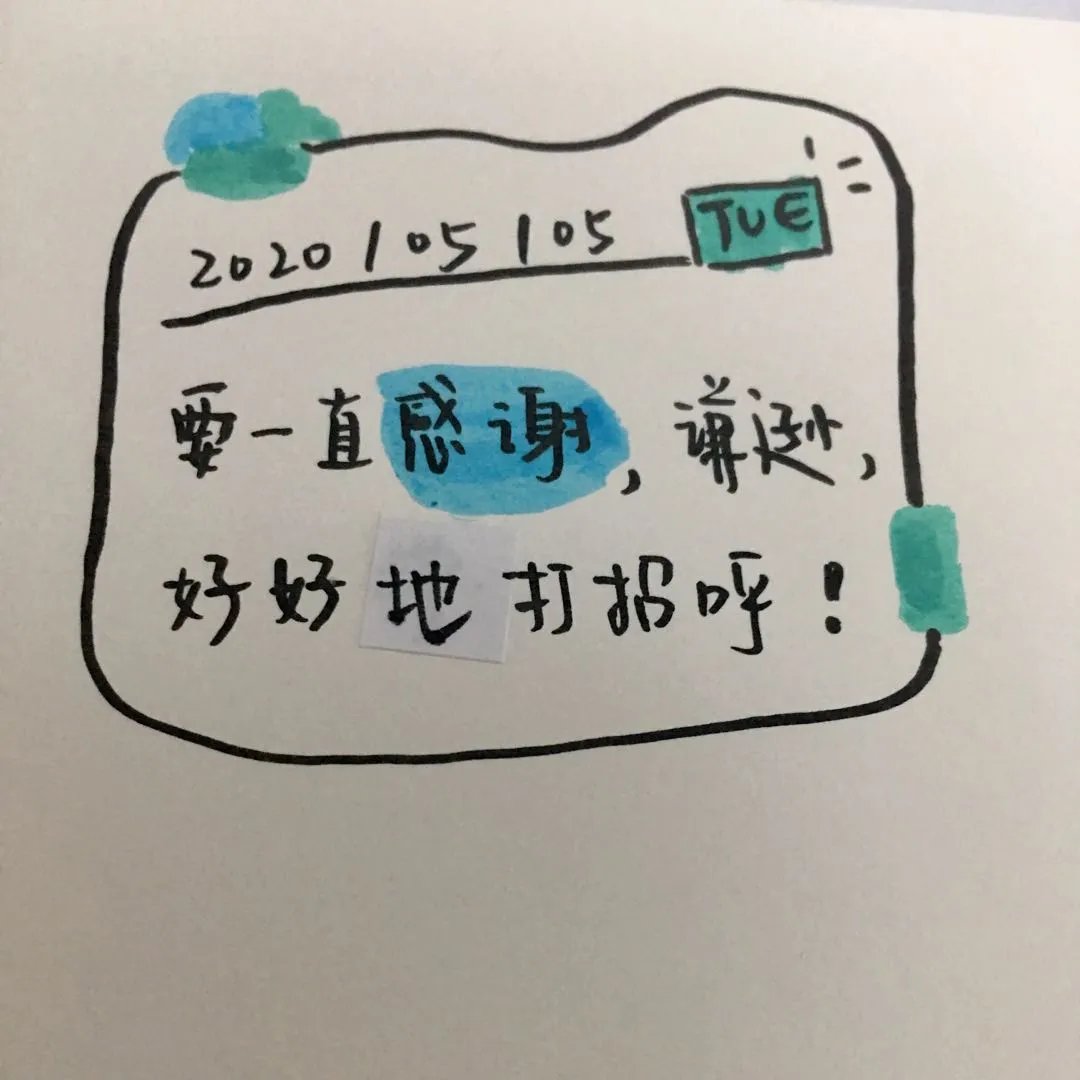 2020/05/05 TUE
要一直感谢,谦逊,
好好地打招呼!